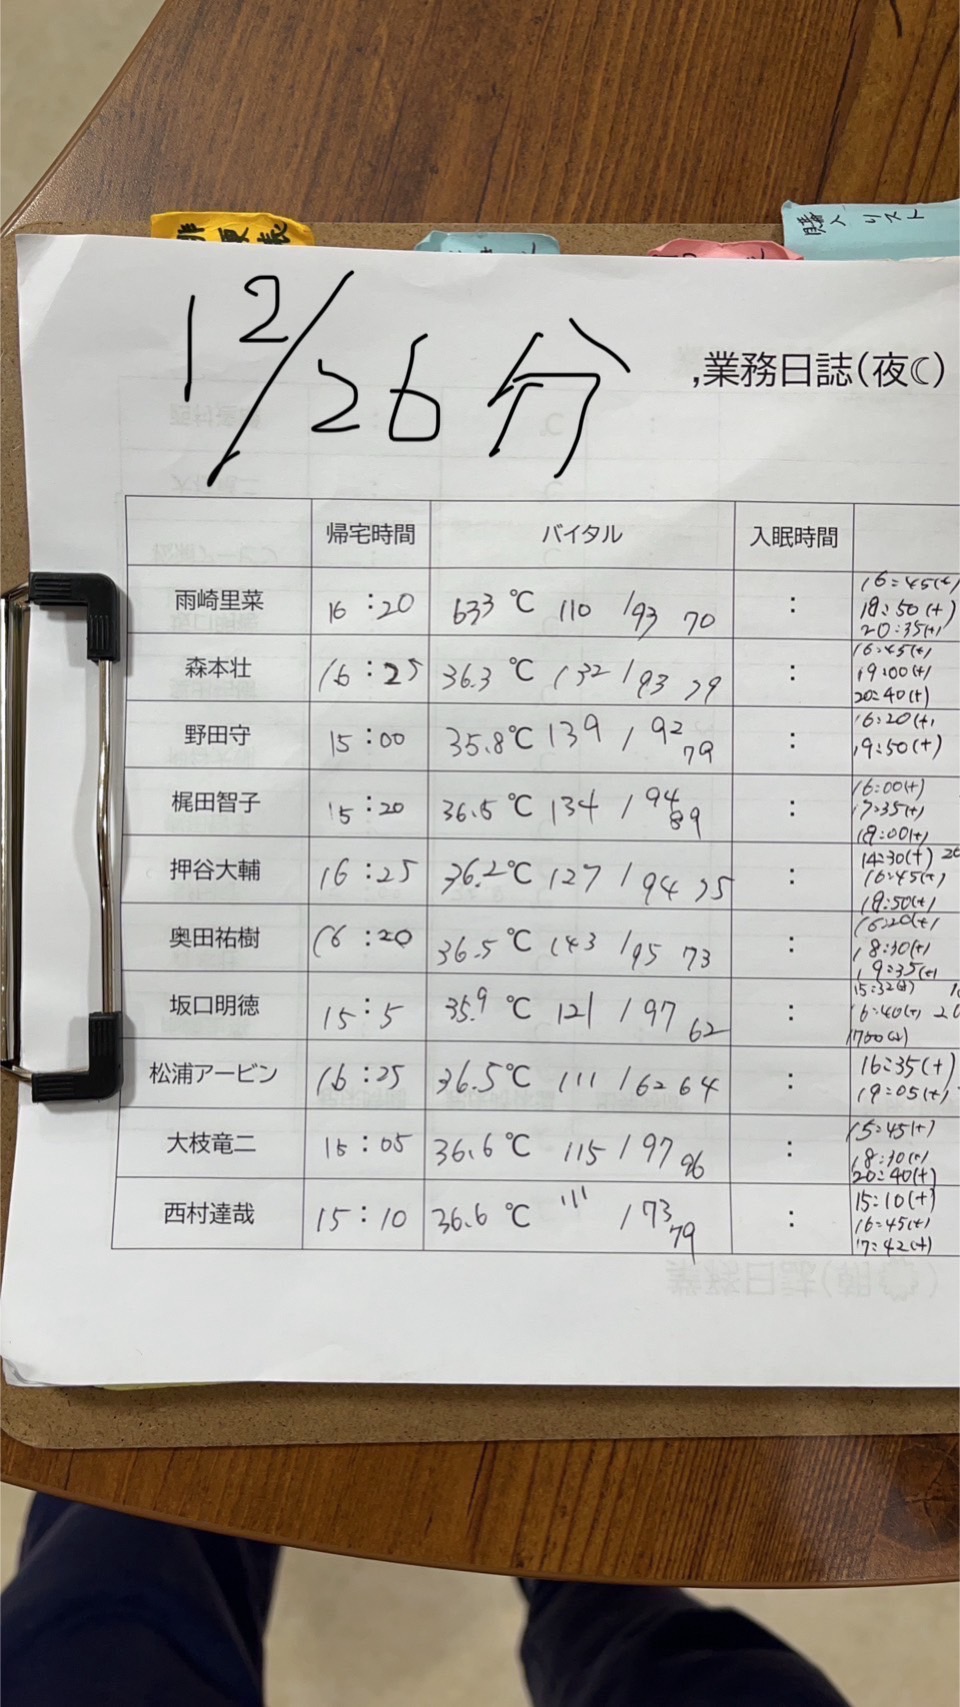 排便表
購入リスト
12/26分
業務日誌(夜☾)
帰宅時間 バイタル 入眠時間
雨崎里菜 16:20 633℃ 110/93 70 : 16:45(+)
18:50(+)
20:35(+)
森本壮 16:25 36.3℃ 132/93 79 : 16:45(+)
19:00(+)
20:40(+)
野田守 15:00 35.8℃ 139/92 79 : 16:20(+)
19:50(+)
梶田智子 15:20 36.5℃ 134/94 89 : 16:00(+)
17:35(+)
18:00(+)
押谷大輔 16:25 36.2℃ 127/94 75 : 14:30(+) 20
16:45(+)
18:50(+)
奥田祐樹 16:20 36.5℃ 143/95 73 : 16:20(+)
18:30(+)
19:35(+)
坂口明徳 15:5 35.9℃ 121/97 62 : 15:32(+)
16:40(+) 20
1700(+)
松浦アービン 16:25 36.5℃ 111/62 64 : 16:35(+)
19:05(+)
大枝竜二 15:05 36.6℃ 115/97 96 : 15:45(+)
18:30(+)
20:40(+)
西村達哉 15:10 36.6℃ 111/73 79 : 15:10(+)
16:45(+)
17:42(+)